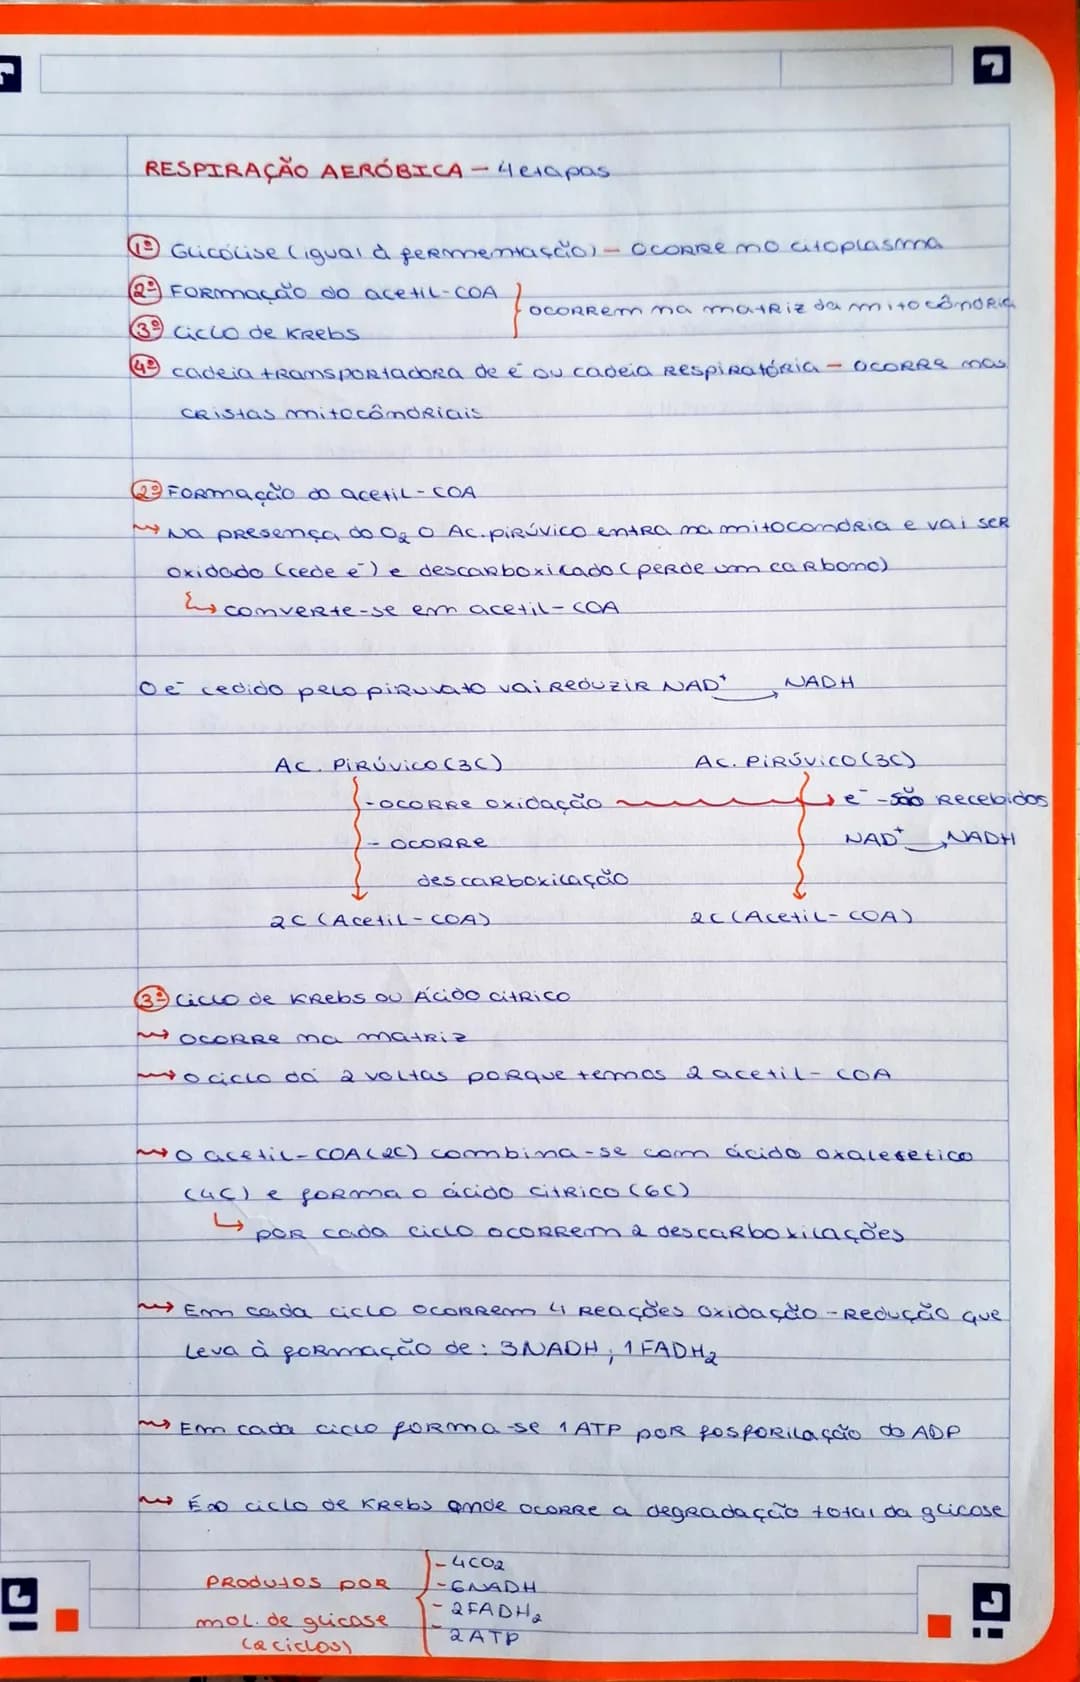 RESPIRAÇÃO AERÓBICA - 4 etapas
1º Glicólise (igual à fermentação) - ocorre no citoplasma
2º Formação do acetil-COA
ocorrem na matriz da mitocôndria
3º Ciclo de Krebs
4º cadeia transportadora de e⁻ ou cadeia respiratória - ocorre nas
cristas mitocôndriais
2º Formação do acetil-COA
Na presença do O₂ o Ac. pirúvico entra na mitocondria e vai ser
oxidado (cede e⁻) e descarboxilado (perde um carbono)
converte-se em acetil-COA
O e⁻ cedido pelo piruvato vai reduzir NAD⁺ → NADH
Ac. Pirúvico (3C) Ac. Pirúvico (3C)
- ocorre oxidação → e⁻ - são recebidos
- ocorre NAD⁺ → NADH
descarboxilação
2C (Acetil-COA) 2C (Acetil-COA)
3º Ciclo de Krebs ou Ácido cítrico
ocorre na matriz
o ciclo dá 2 voltas porque temos 2 acetil-COA
o acetil-COA (2C) combina-se com ácido oxaleretico
(4C) e forma o ácido cítrico (6C)
por cada ciclo ocorrem 2 descarboxilações
Em cada ciclo ocorrem 4 reações oxidação-redução que
leva à formação de: 3NADH, 1FADH₂
Em cada ciclo forma-se 1 ATP por fosforilação do ADP
É no ciclo de Krebs onde ocorre a degradação total da glicose
Produtos por
mol. de glicose
(2 ciclos)
- 4CO₂
- 6NADH
- 2FADH₂
- 2 ATP